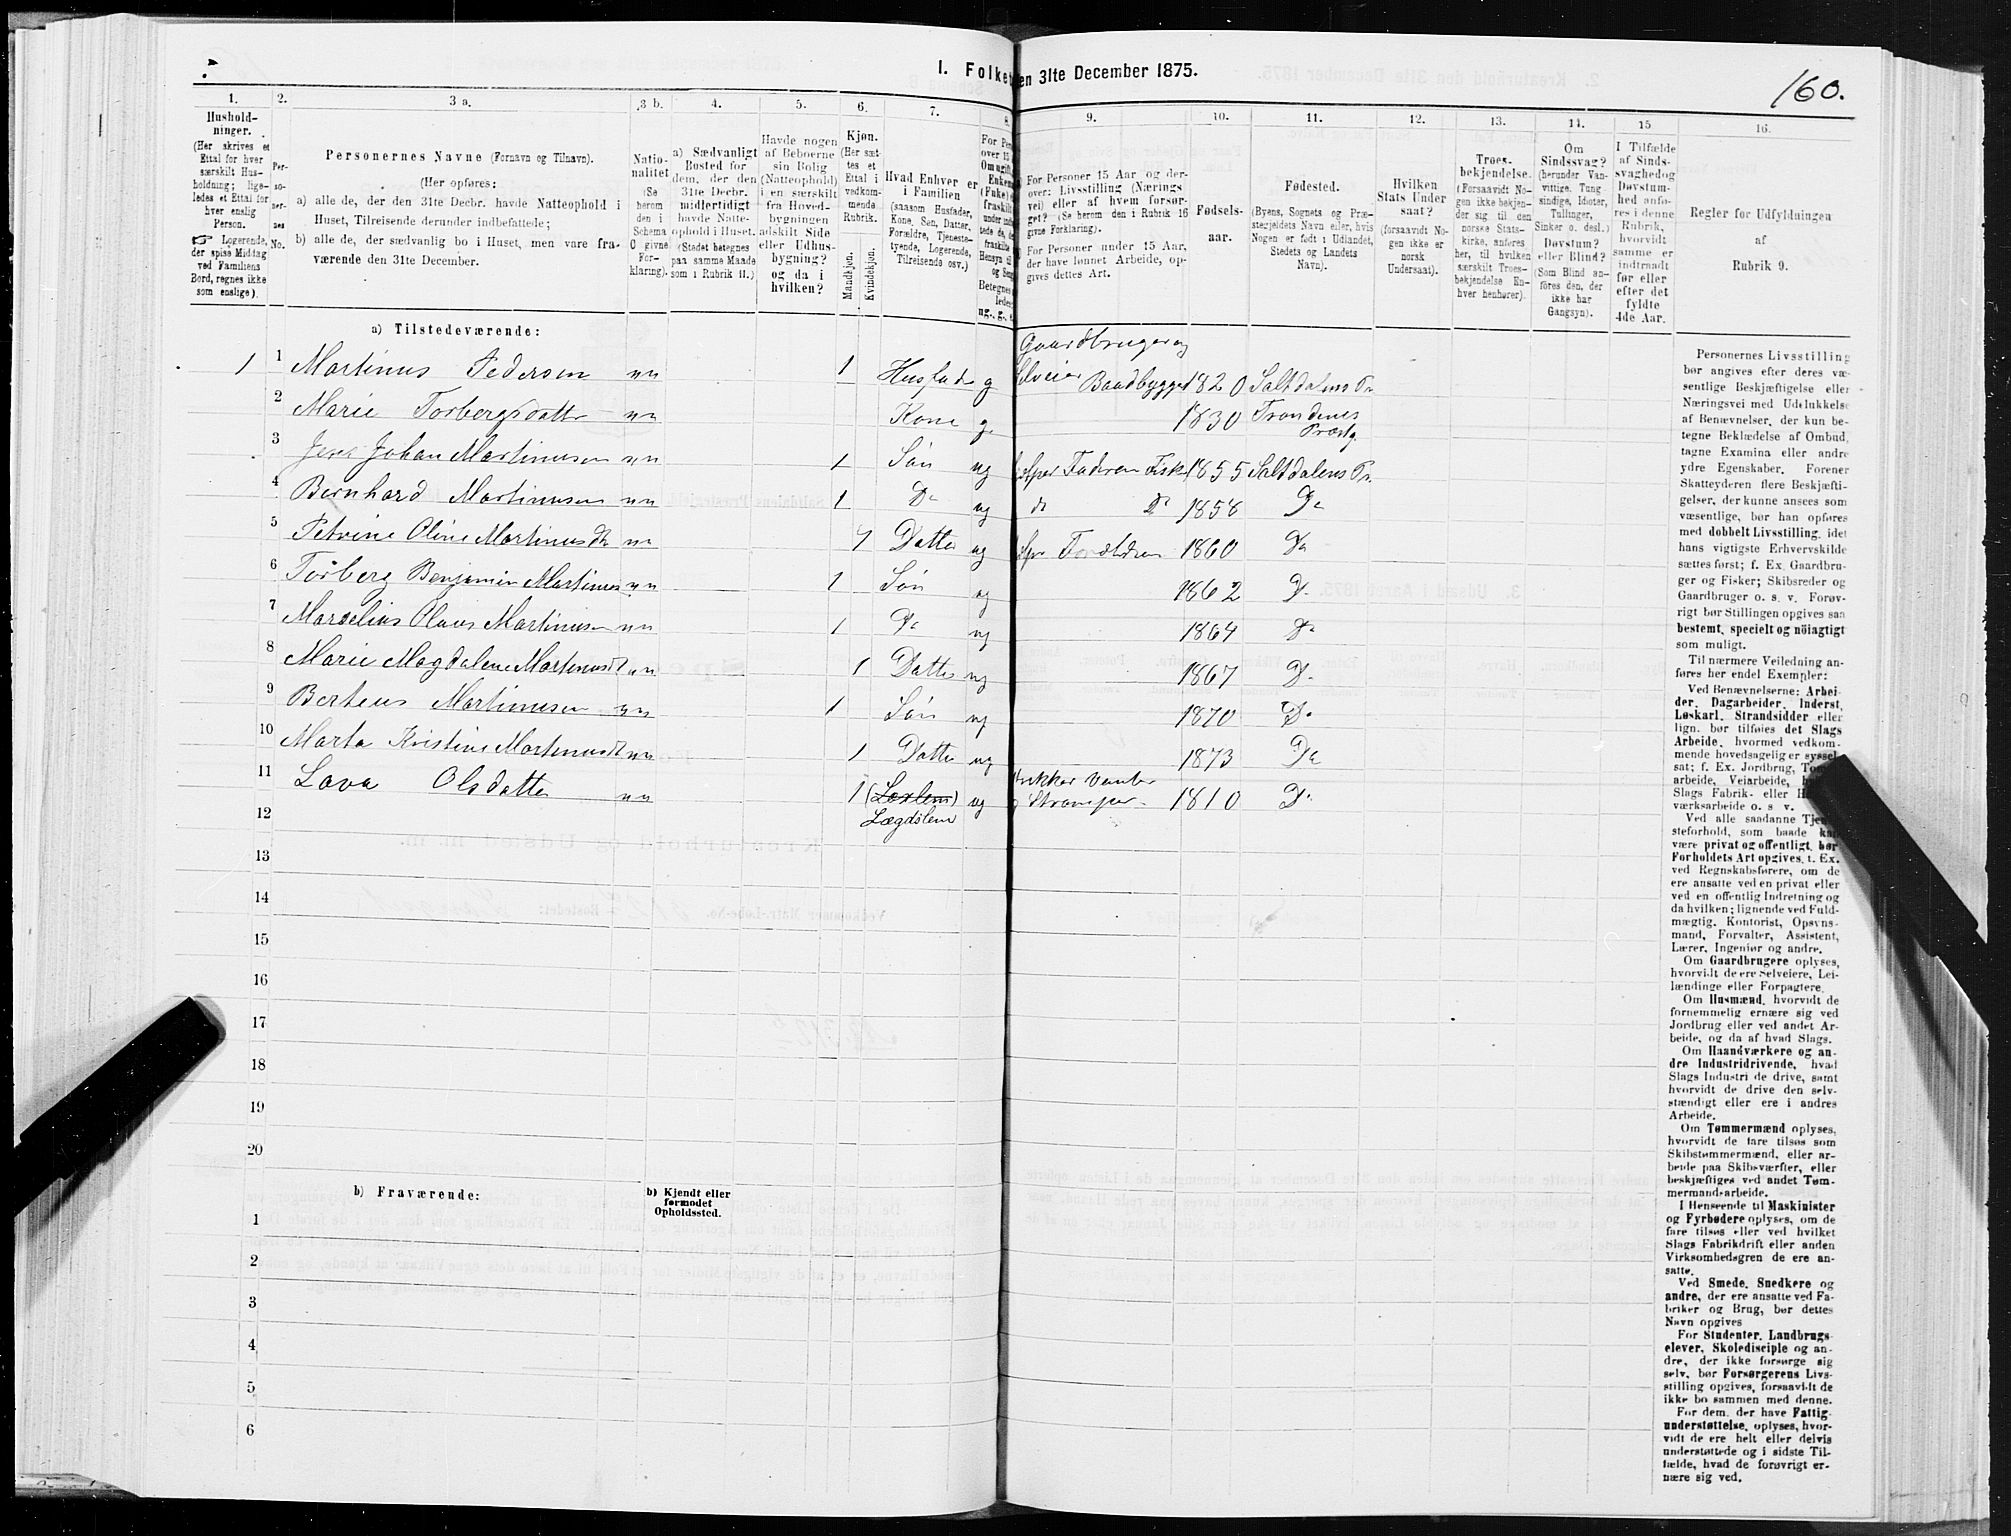 1. Folket
en 31te December 1875.
160.
1.
2.
3 a.
3 b.
4.
5.
6.
7.
8.
9.
10.
11.
12.
13.
14.
15
16.
Hushold-
ninger.
(Her skrives et
Ettal for hver
særskilt Hus-
holdning; lige-
ledes et Ettal for
hver enslig
Person.
☞ Logerende,
der spise Middag
ved Familiens
Bord, regnes ikke
som enslige).
Per-
so-
ner-
nes
No.
Personernes Navne (Fornavn og Tilnavn).
(Her opføres:
a) alle de, der den 31te Decbr. havde Natteophold i
Huset, Tilreisende derunder indbefattede;
b) alle de, der sædvanlig bo i Huset, men vare fra-
værende den 31te December.
Natio-
nalitet
(Se
herom
den i
Schema
O givne
For-
klaring).
a) Sædvanligt
Bosted for
dem, der den
31te Decbr.
midlertidigt
havde Natte-
ophold i Huset.
(Stedet betegnes
paa samme Maade
som i Rubrik 11.)
Havde nogen
af Beboerne
sin Bolig
(Natteophold)
i en særskilt
fra Hoved-
bygningen
adskilt Side
eller Udhus-
bygning?
og da i
hvilken?
Kjøn.
(Her sæt-
tes et
Ettal i
vedkom-
mende
Rubrik.
Mandkjøn.
Kvindekjøn.
Hvad Enhver er
i Familien
(saasom Husfader,
Kone, Søn, Datter,
Forældre, Tjeneste-
tyende, Logerende,
Tilreisende osv.)
For Personer 15 Aar og der-
over: Livsstilling (Nærings
vei) eller af hvem forsør-
get? (Se herom den i Rubrik 16
givne Forklaring).
For Personer under 15 Aar,
der have lønnet Arbeide, op-
gives dettes Art.
Fødsels-
aar.
Fødested.
(Byens, Sognets og Præ-
stegjeldets Navn eller, hvis
Nogen er født i Udlandet,
Stedets og Landets
Navn).
Hvilken
Stats Under
saat?
(forsaavidt No-
gen ikke er
norsk
Undersaat).
Troes-
bekjendelse.
(Forsaavidt No-
gen ikke bekjen-
der sig til den
norske Stats-
kirke, anføres
her, til hvilken
særskilt Troes-
bekjendelse En-
hver henhører).
Om
Sindssvag?
(herunder Van-
vittige, Tung
sindige, Idioter,
Tullinger,
Sinker o. desl.)
Døvstum?
eller Blind?
(Som Blind an-
føres den, der
ikke har
Gangsyn).
I Tilfælde
af Sinds-
svaghed og
Døvstum-
hed anfø-
res i denne
Rubrik,
hvorvidt
samme er
indtraadt
før eller
efter det
fyldte
4de Aar.
Regler for Udfyldningen
af
Rubrik 9.
a) Tilstedeværende:
1 1 Martinus Pedersen nn 1 Husfader g Gaardbruger og Selveier Baadbygger 1820 Saltdalens Pr.
2 Marie Torbergsdatter nn Kone g. 1830 Trondenes Præstg.
3 Jens Johan Martinusen nn 1 Søn ug hjelper Faderen Fisk. 1855 Saltdalens Pr.
4 Bernhard Martinusen nn 1 Do ug do Do 1858 Do
5 Petrine Oline Martinusdtr nn 1 Datter ug hjelper Forældrene 1860 Do
6 Torberg Benjamin Martinus nn 1 Søn ug 1862 Do
7 Marselius Olaus Martinusen nn 1 Do ug 1864 Do
8 Marie Magdalene Martinusdt nn 1 Datter ug 1867 Do
9 Berteus Martinusen nn 1 Søn ug 1870 Do
10 Marta Kristine Martinusdt nn 1 Datter ug 1873 Do
11 Lava Olsdatter nn 1 Lægdslem ug strikker Vanter og Strømper 1810 Do
12
13
14
15
16
17
18
19
20
b) Fraværende:
b) Kjendt eller
formodet
Opholdssted.
1
2
3
4
5
6
Personernes Livsstilling
bør angives efter deres væ-
sentlige Beskjæftigelse eller
Næringsvei med Udelukkelse
af Benævnelser, der kun be-
tegne Beklædelse af Ombud,
tagne Examina eller andre
ydre Egenskaber. Forener
Skatteyderen flere Beskjæfti-
gelser, der kunne ansees som
væsentlige, bør han opføres
med dobbelt Livsstilling, idet
hans vigtigste Erhvervskilde
sættes først; f. Ex. Gaardbru-
ger og Fisker; Skibsreder og
Gaardbruger o. s. v. Forøv-
rigt bør Stillingen opgives saa
bestemt, specielt og nöiagtigt
som muligt.
Til nærmere Veiledning an-
føres her endel Exempler:
Ved Benævnelserne: Arbei-
der, Dagarbeider, Inderst,
Løskarl, Strandsidder eller
lign. bør tilføies det Slags
Arbeide, hvormed vedkom-
mende hovedsagelig er syssel-
sat; f. Ex. Jordbrug, Tom
arbeide, Veiarbeide,
Slags Fabrik- eller H
værksarbeide o. s v.
Ved alle saadanne Tjene
steforhold, som baade kan
være privat og offentligt, bør
Forholdets Art opgives, t. Ex.
ved Regnskabsførere, om de
ere ansatte ved en privat eller
ved en offentlig Indretning og
da hvilken; lignende ved Fuld-
mægtig, Kontorist, Opsyns-
mand, Forvalter, Assistent,
Lærer, Ingeniør og andre.
Om Gaardbrugere oplyses,
hvorvidt de ere Selveiere, Lei-
lændinge eller Forpagtere.
Om Husmænd, hvorvidt de
fornemmelig ernære sig ved
Jordbrug eller ved andet Ar-
beide, og da af hvad Slags.
Om Haandværkere og an-
dre Industridrivende, hvad
Slags Industri de drive, samt
hvorvidt de drive den selv-
stændigt eller ere i andres
Arbeide.
Om Tømmermænd oplyses,
hvorvidt de fare tilsøs som
Skibstømmermænd, eller ar-
beide paa Skibsværfter, eller
beskjæftiges ved andet Tøm-
mermandsarbeide.
I Henseende til Maskinister
og Fyrbødere oplyses, om de
fare tilsøs eller ved hvilket
Slags Fabrikdrift eller anden
Virksomhedsgren de ere an-
satte.
Ved Smede, Snedkere og
andre, der ere ansatte ved Fa-
briker og Brug, bør dettes
Navn opgives
For Studenter, Landbrugs-
elever, Skoledisciple og an-
dre, der ikke forsørge sig
selv, bør Forsørgerens Livs-
stilling opgives, forsaavidt de
ikke bo sammen med denne.
For dem, der have Fattig-
understøttelse, oplyses, hvor-
vidt de ere helt eller delvis
understøttede og i sidste Til-
fælde, hvad de forøvrigt er-
nære sig ved.